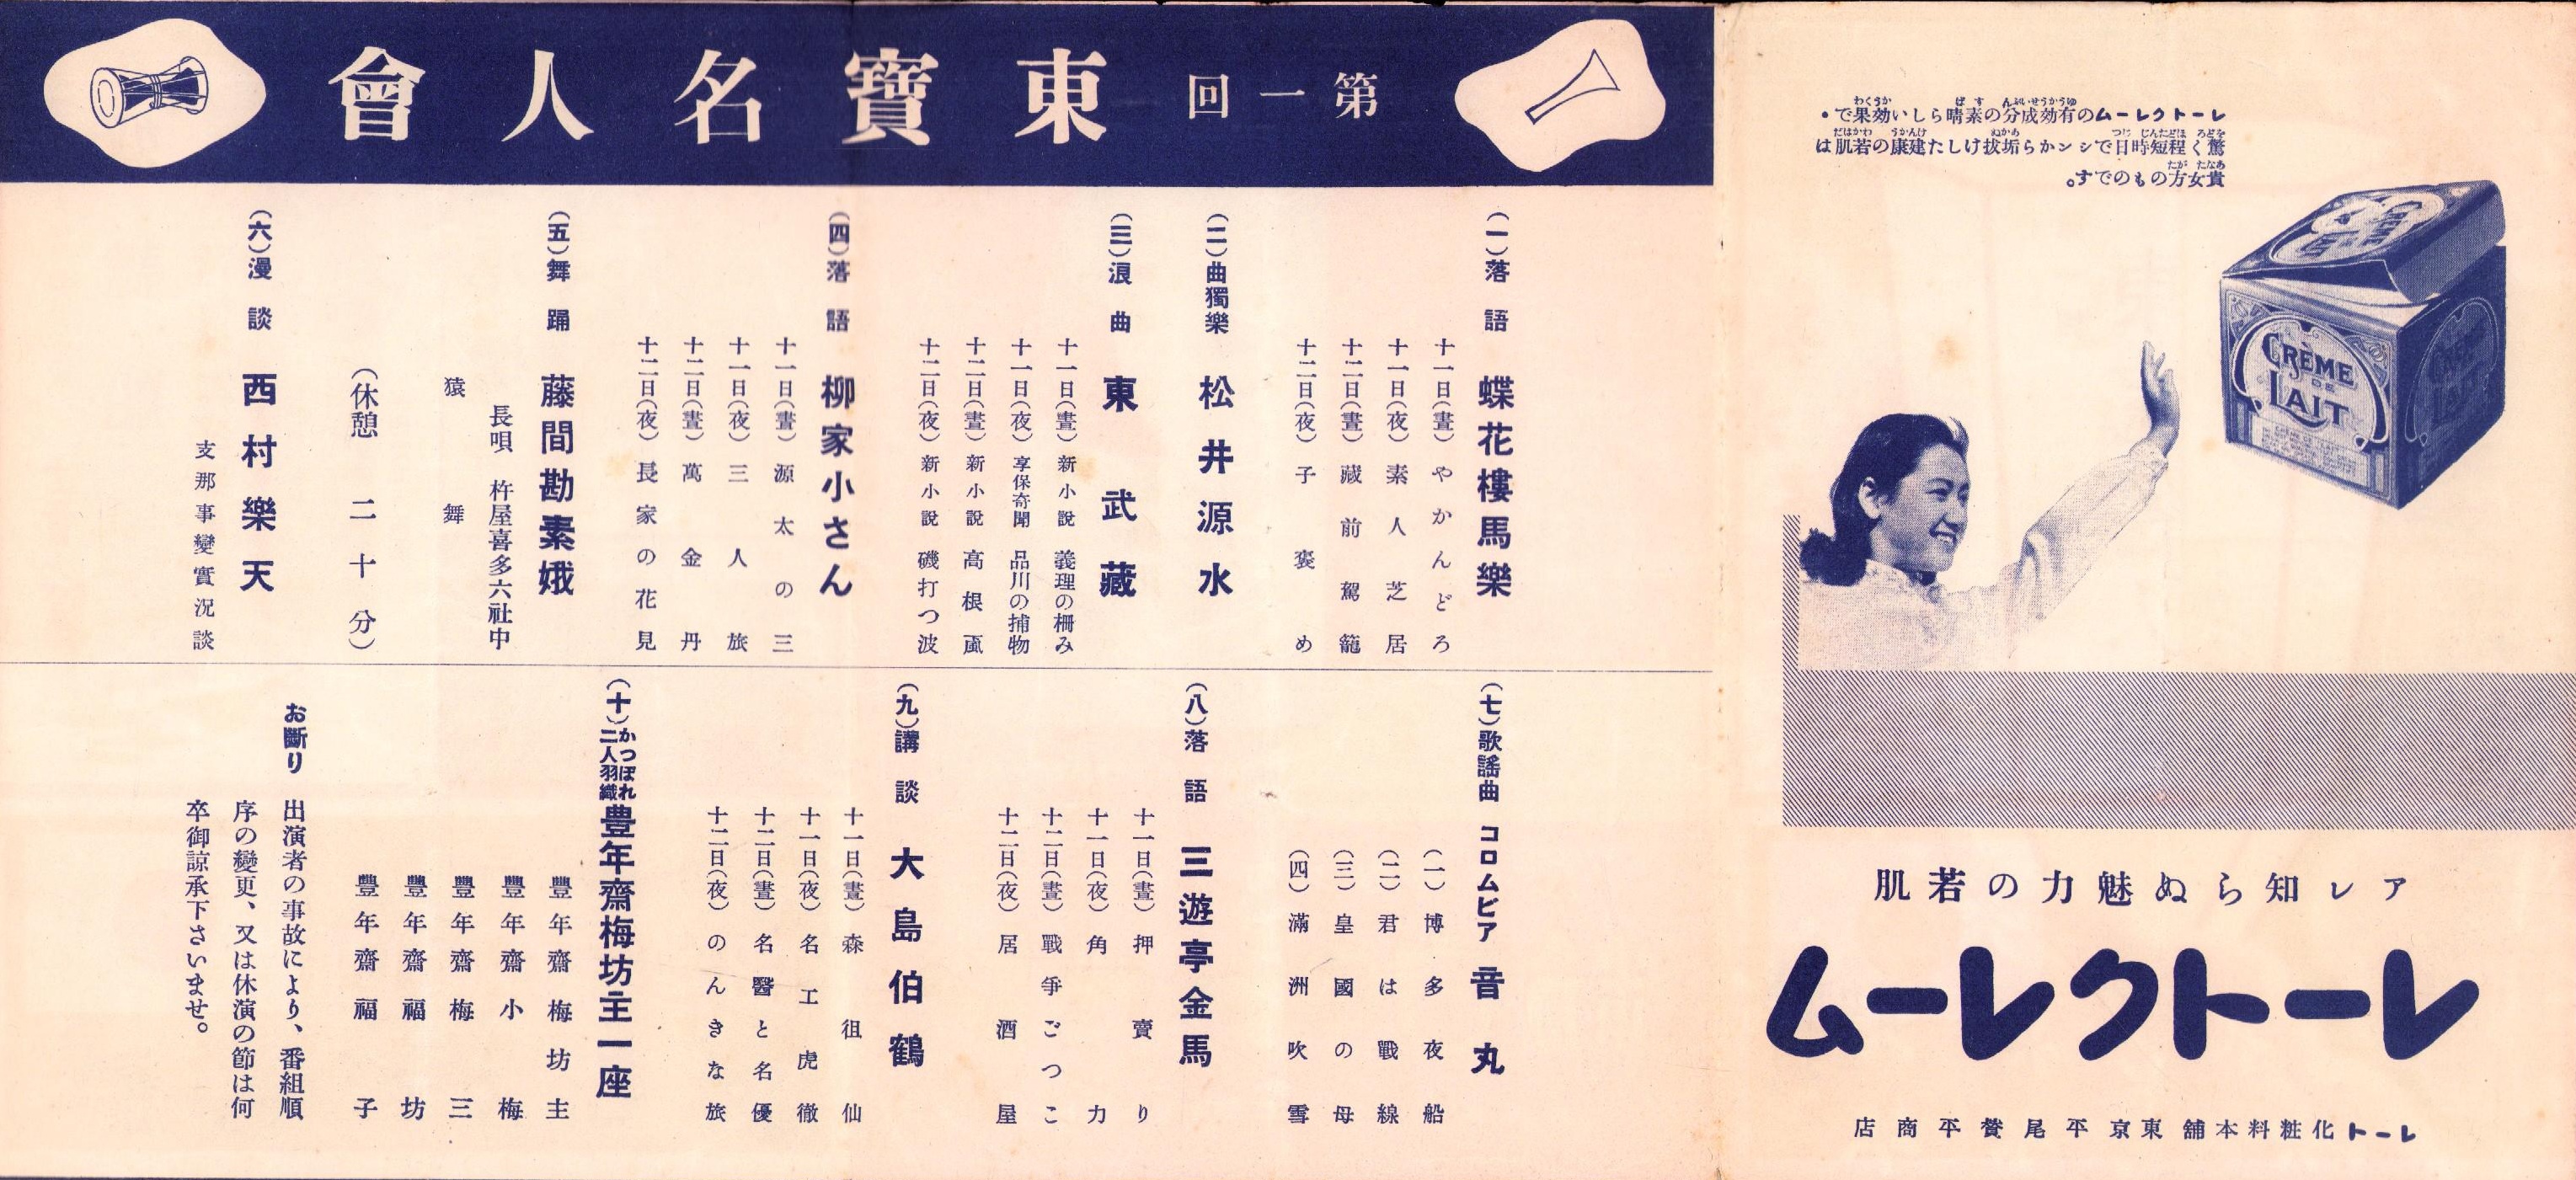 第一回 東寶名人會
(一)落語 蝶花樓馬樂
十一日(晝)やかんどろ
十一日(夜)素人芝居
十二日(晝)藏前駕籠
十二日(夜)子褒め
(二)曲獨樂 松井源水
(三)浪曲 東武藏
十一日(晝)新小說 義理の柵み
十一日(夜)享保奇聞 品川の捕物
十二日(晝)新小說 高根颪
十二日(夜)新小說 磯打つ波
(四)落語 柳家小さん
十一日(晝)源太の三
十一日(夜)三人旅
十二日(晝)萬金丹
十二日(夜)長家の花見
(五)舞踊 藤間勘素娥
長唄 杵屋喜多六社中
猿舞
(休憩 二十分)
(六)漫談 西村樂天
支那事變實況談
(七)歌謠曲 コロムビア 音丸
(一)博多夜船
(二)君は戰線
(三)皇國の母
(四)滿洲吹雪
(八)落語 三遊亭金馬
十一日(晝)押賣り
十一日(夜)角力
十二日(晝)戰爭ごつこ
十二日(夜)居酒屋
(九)講談 大島伯鶴
十一日(晝)森徂仙
十一日(夜)名工虎徹
十二日(晝)名醫と名優
十二日(夜)のんきな旅
(十)かつぽれ 二人羽織 豊年齋梅坊主一座
豐年齋梅坊主
豐年齋小梅
豐年齋梅三
豐年齋福坊
豐年齋福子
お斷り 出演者の事故により、番組順
序の變更、又は休演の節は何
卒御諒承下さいませ。
レートクレームの有効成分の素晴らしい効果で・
驚く程短時日でシンから垢拔けした建康の若肌は
貴女方のものです。
CRÈME
DE
LAIT
アレ知らぬ魅力の若肌
レートクレーム
レート化粧料本舖 東京 平尾賛平商店